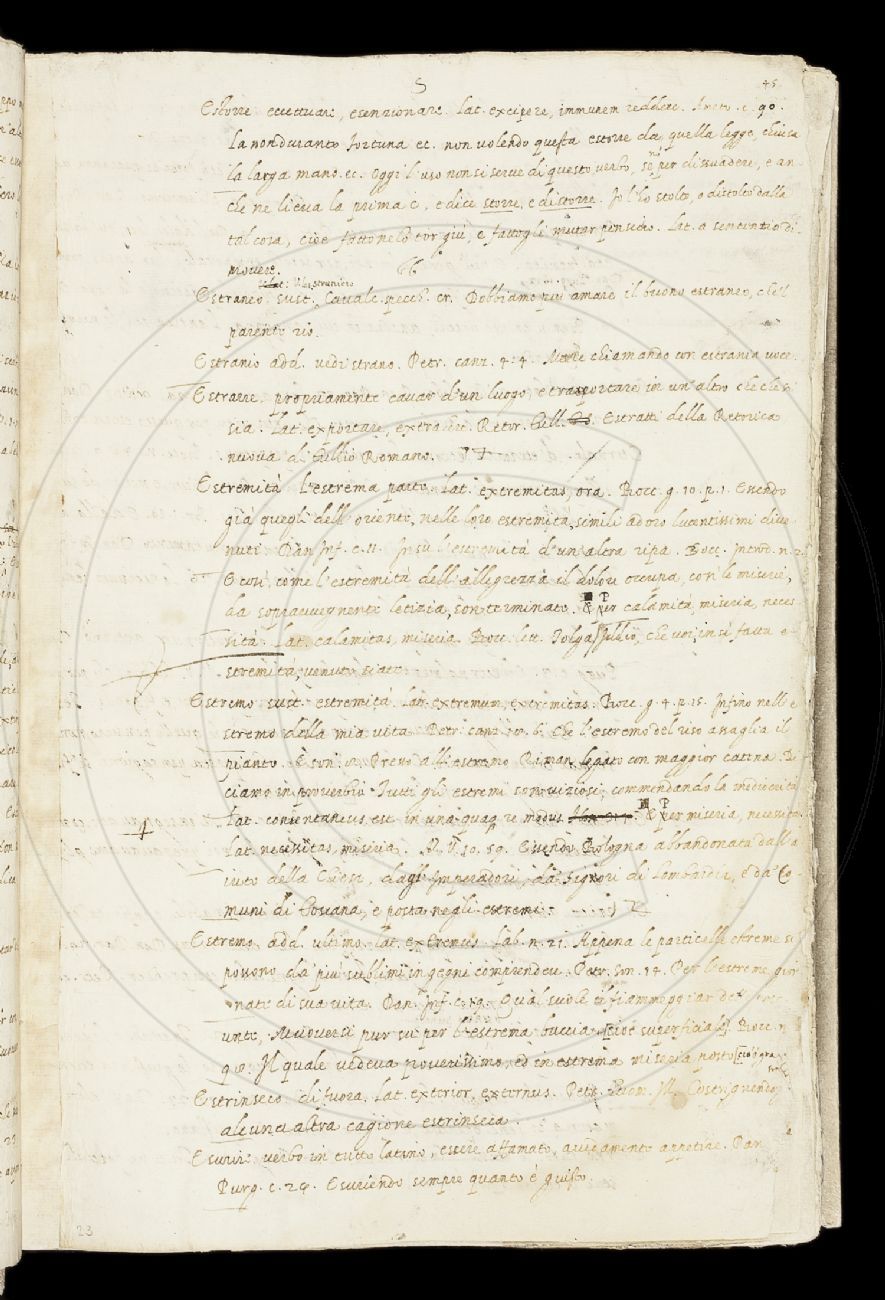 S
45
Estorre eccettuare, esenzionare. Lat. excipere, immunem reddere. Ameto. c. 90.
La non durante fortuna ec. non volendo questa estorre da quella legge, chiusa
la larga mano. ec. Oggi l'uso non si serve di questo verbo, se non per dissuadere, e an-
che ne lieva la prima e, e dice storre, e distorre. Io l'ho stolto, o distolto dalla
tal cosa, cioè fattonelo tor giù, e fattogli mutar pensiero. Lat. a sententia di-
movere.
Estraneo sust. Cavalc. pecc. cr. Dobbiamo più amare il buono estraneo, che 'l
parente rio.
Estranio add. vedi strano. Petr. canz. 4. 4. Merzè chiamando con estrania voce.
Estrarre propriamente cavar d'un luogo, e trasportare in un altro che che si
sia. Lat. exportare, extrahere. Retor. Tull. Estratti della Retorica
nuova di Tullio Romano.
Estremità l'estrema parte. Lat. extremitas, ora. Bocc. g. 10. p. 1. Essendo
già quegli dell'oriente, nelle loro estremità, simili ad oro lucentissimi dive-
nuti. Dan. Inf. c. 11. In su l'estremità d'un'alta ripa. Bocc. Introd. n. 2.
E così come l'estremità dell'allegrezza il dolore occupa, così le miserie,
da sopravvegnente letizia, son terminate. & P per calamità, miseria, neces-
sità. Lat. calamitas, miseria. Bocc. lett. Tolga Iddio, che voi, in sì fatta e-
stremità, venuto siate.
Estremo sust. estremità. Lat. extremum, extremitas. Bocc. g. 4. p. 15. Infino nello e-
stremo della mia vita. Petr. canz. 6. Che l'estremo del riso assaglia il
pianto. E son. Preso all'estremo Riman legato con maggior catena. Di-
ciamo in proverbio Tutti gli estremi son viziosi, commendando la mediocrità
Lat. consentaneus est in unaquaq. re modus. & P per miseria, necessità
Lat. necessitas, miseria. M. V. 10. 59. Essendo Bologna abbandonata dall'a-
iuto della Chiesa, dagl'Imperadori, da' Signori di Lombardia, e da' Co-
muni di Toscana, e posta negli estremi.
Estremo add. ultimo. Lat. extremus. Lab. n. 21. Appena le particelle estreme si
possono da' più sublimi ingegni comprendere. Petr. Son. 14. Per l'estreme gior-
nate di sua vita. Dan. Inf. c. 19. Qual suole il fiammeggiar delle cose
unte, Muoversi pur su per l'estrema buccia [cioè superficiale] Bocc. n.
Il quale vedeva poverissimo, ed in estrema miseria posto
Estrinseco di fuora. Lat. exterior, externus. Petr. Costrignendo
alcuna altra cagione estrinseca.
Esurire verbo in tutto latino, essere affamato, avidamente appetire. Dan.
Purg. c. 24. Esuriendo sempre quanto è giusto.
23